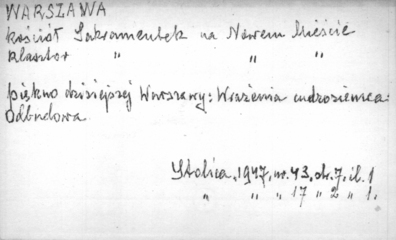 WARSZAWA
kościół Sakramentek na Nowem Mieście
klasztor " " "
piękno dzisiejszej Warszawy: Wrażenia cudzoziemca.
Odbudowa
Stolica, 1947, nr. 43, str. 7, il. 1
" " " 17 " 2 " 1.